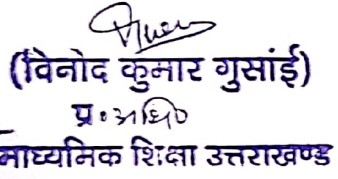 (विनोद कुमार गुसांई)
प्र०अधि०
माध्यमिक शिक्षा उत्तराखण्ड